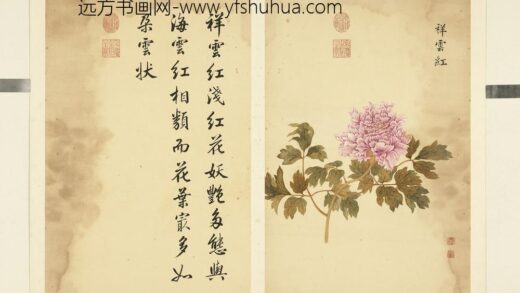 远方书画网- www.yfshuhua.com
祥雲紅
祥雲紅淺紅花妖艷多態與
海雲紅相類而花葉㝡多如
朵雲状